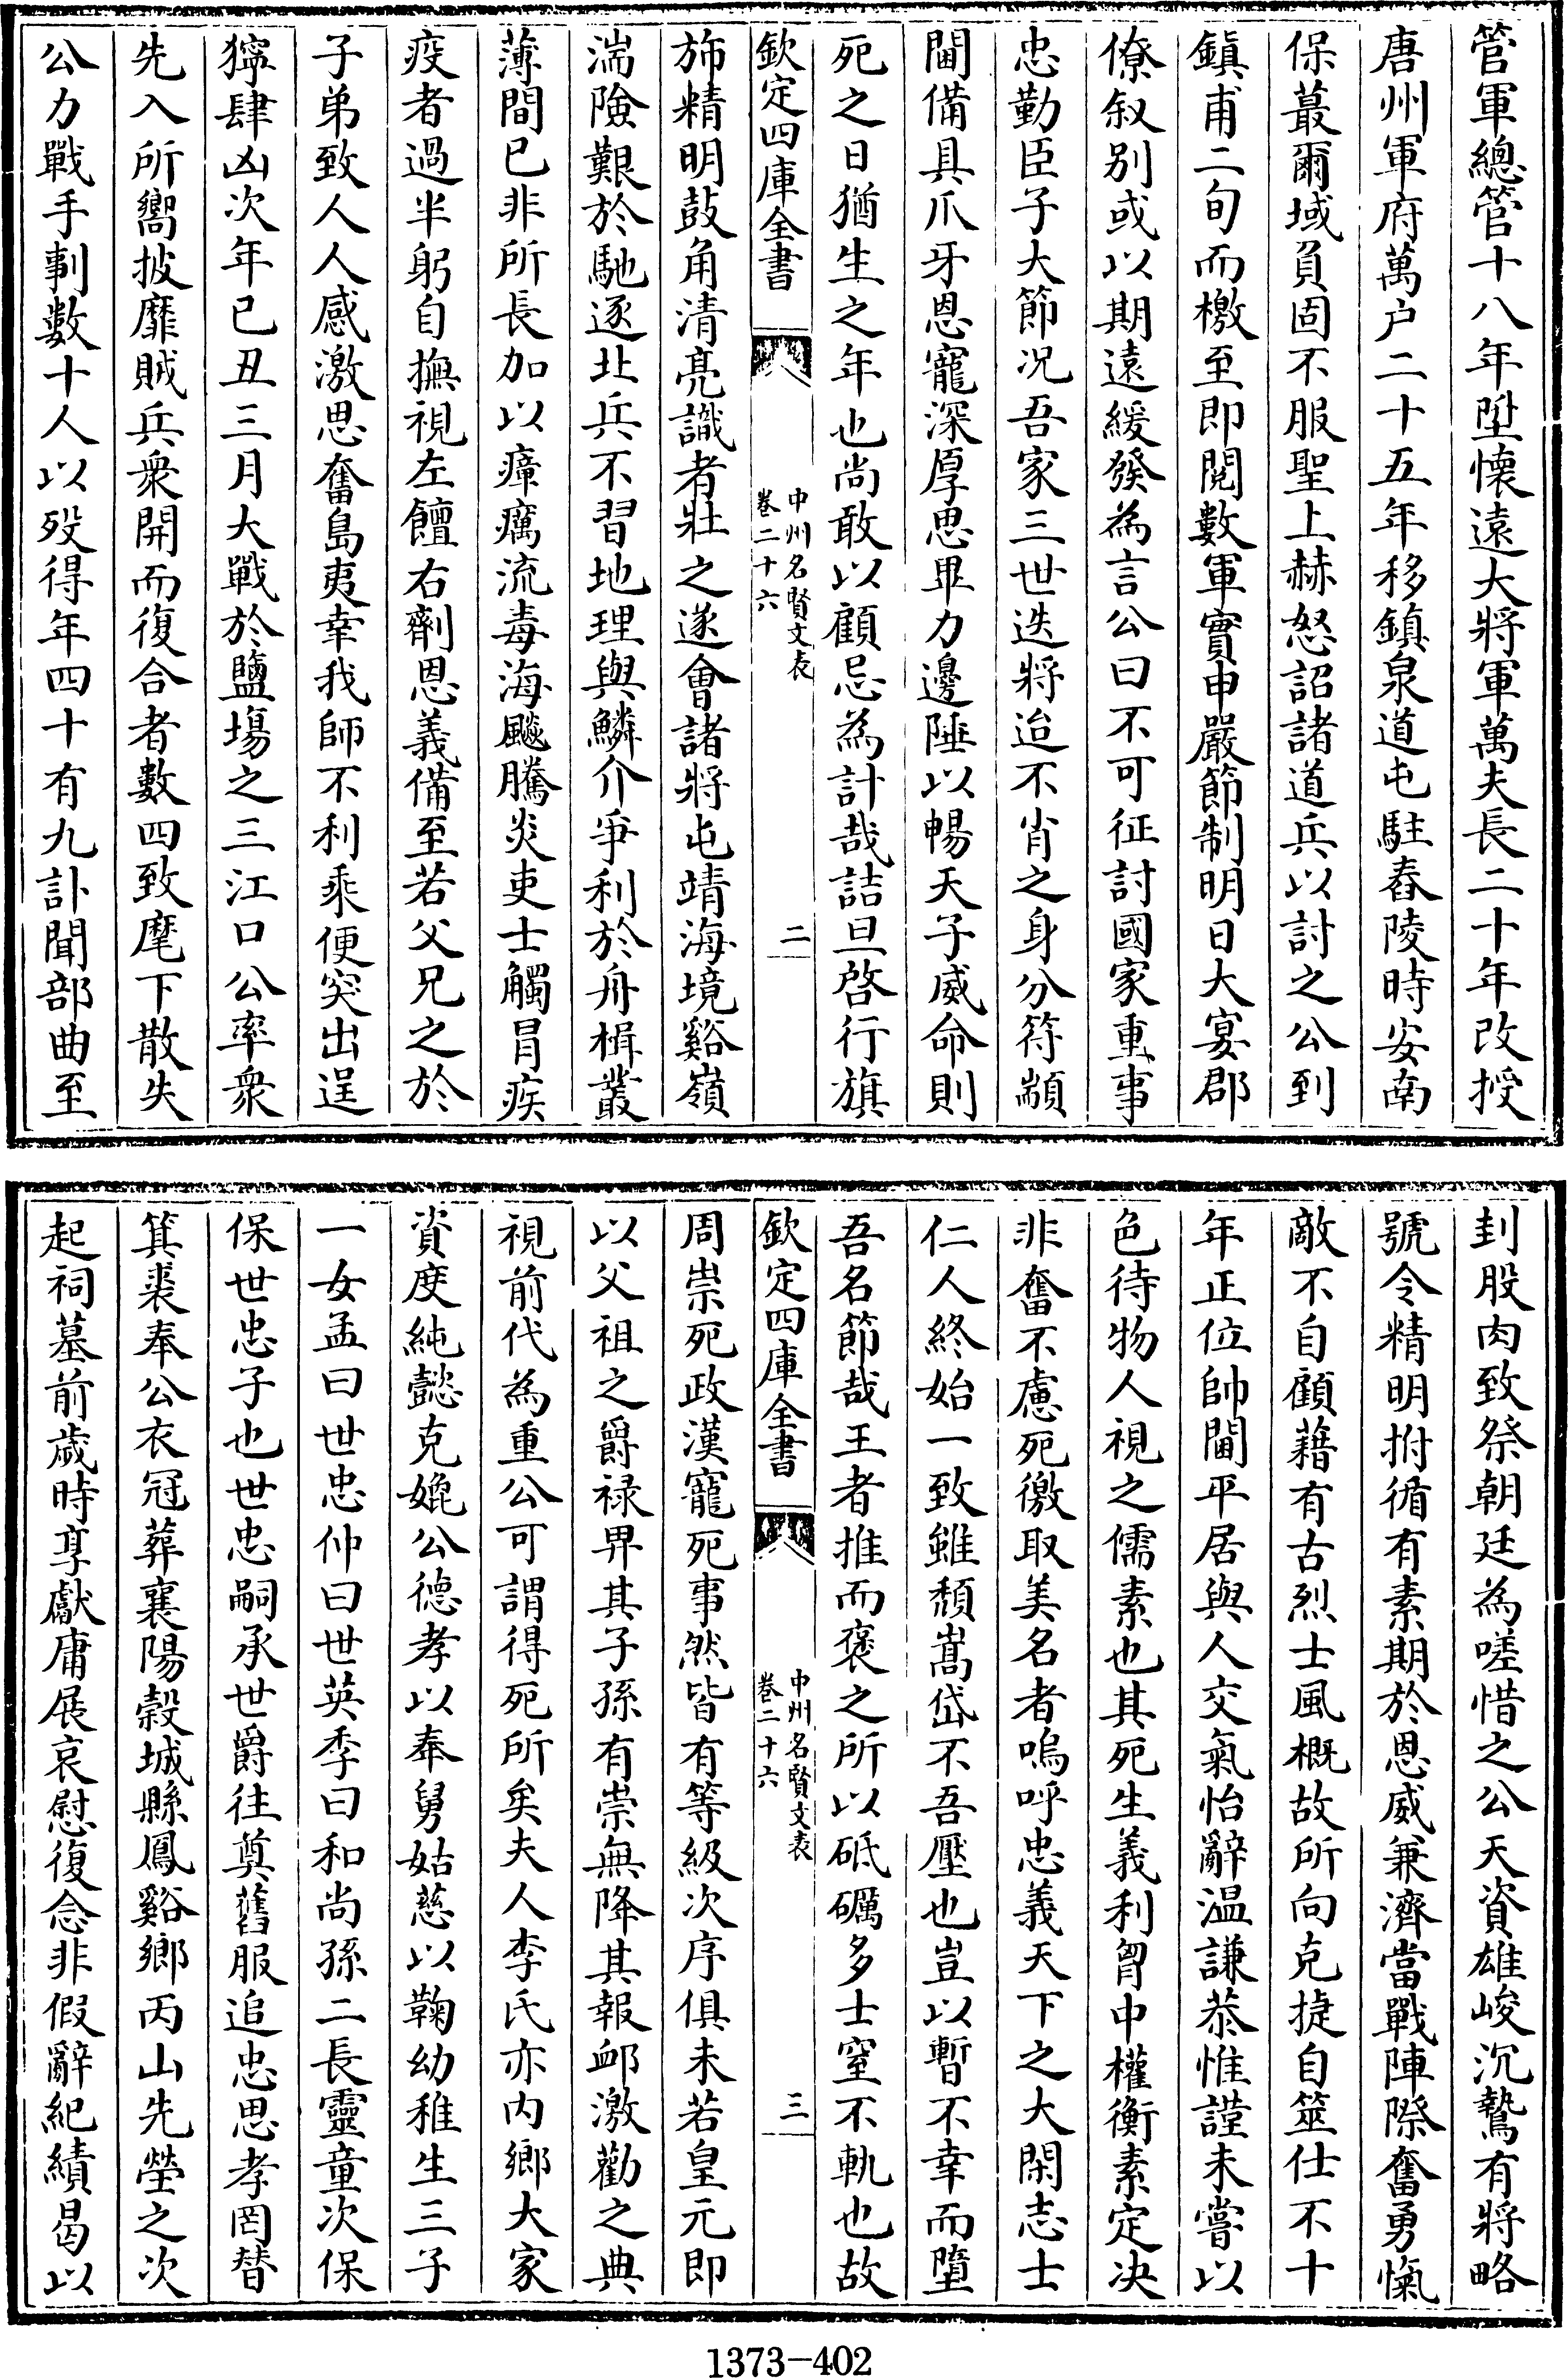 管軍總管十八年陞懷遠大將軍萬夫長二十年改授
唐州軍府萬户二十五年移鎮泉道屯駐舂陵時安南
保蕞爾域負固不服聖上赫怒詔諸道兵以討之公到
鎮甫二旬而檄至即閲數軍實申嚴節制明日大宴郡
僚叙别或以期遠緩發為言公曰不可征討國家重事
忠勤臣子大節况吾家三世迭將迨不肖之身分符顓
閫備具爪牙恩寵深厚思畢力邊陲以暢天子威命則
死之日猶生之年也尚敢以顧忌為計哉詰旦啓行旗
欽定四庫全書
中州名賢文表
卷二十六
二
斾精明鼓角清亮識者壯之遂會諸將屯靖海境谿嶺
湍險艱於馳逐北兵不習地理與鱗介爭利於舟楫叢
薄間已非所長加以瘴癘流毒海颷騰炎吏士觸冒疾
疫者過半躬自撫視左饘右劑恩義備至若父兄之於
子弟致人人感激思奮島夷幸我師不利乘便突出逞
獰肆凶次年己丑三月大戰於鹽場之三江口公率衆
先入所嚮披靡賊兵衆開而復合者數四致麾下散失
公力戰手剚數十人以歿得年四十有九訃聞部曲至
刲股肉致祭朝廷為嗟惜之公天資雄峻沉鷙有將略
號令精明拊循有素期於恩威兼濟當戰陣際奮勇愾
敵不自顧藉有古烈士風概故所向克捷自筮仕不十
年正位帥閫平居與人交氣怡辭温謙恭惟謹未嘗以
色待物人視之儒素也其死生義利胷中權衡素定决
非奮不慮死徼取美名者嗚呼忠義天下之大閑志士
仁人終始一致雖頽嵩岱不吾壓也豈以暫不幸而墮
吾名節哉王者推而褒之所以砥礪多士窒不軌也故
欽定四庫全書
中州名賢文表
卷二十六
三
周崇死政漢寵死事然皆有等級次序俱未若皇元即
以父祖之爵禄畀其子孫有崇無降其報卹激勸之典
視前代為重公可謂得死所矣夫人李氏亦内鄉大家
資度純懿克媲公德孝以奉舅姑慈以鞠幼稚生三子
一女孟曰世忠仲曰世英季曰和尚孫二長靈童次保
保世忠子也世忠嗣承世爵往奠舊服追忠思孝罔替
箕裘奉公衣冠葬襄陽穀城縣鳳谿鄉丙山先塋之次
起祠墓前歲時享獻庸展哀慰復念非假辭紀績曷以
1373-402